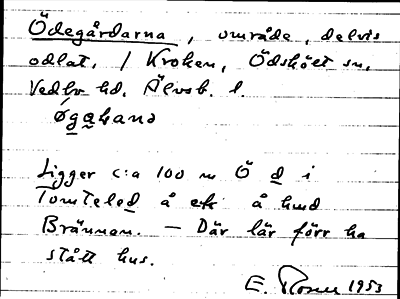 Ödegårdarna, område, delvis
odlat, / Kroken, Ödskölt sn,
Vedbo hd. Älvsb. l.

Ligger c:a 100 m Ö d i
Tomteled å å hmd
Brännan. — Där lär förr ha
stått hus.
E. 1953